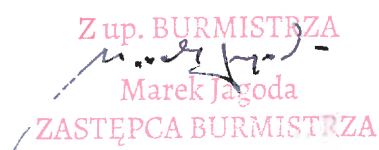 Z up. BURMISTRZA
Marek Jagoda
ZASTĘPCA BURMISTRZA